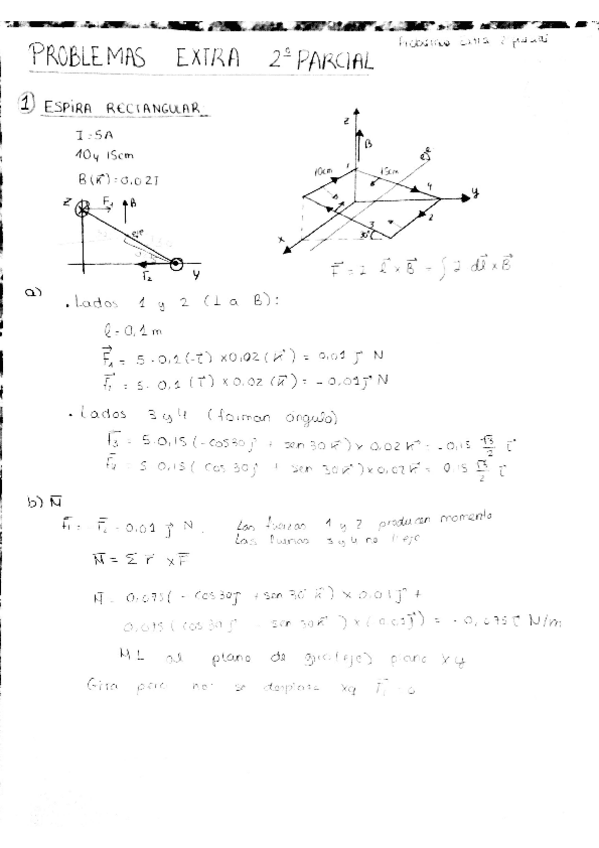 PROBLEMAS EXTRA 2º PARCIAL
1 ESPIRA RECTANGULAR
I = 5A
10 y 15cm
B(k⃗) = 0.02T
Z F₁ B
eje
F₂ y
z
B
10cm 15cm
y
4
2
3
30°
x
F⃗ = I l⃗ x B⃗ = ∫ I dl⃗ x B⃗
a) . Lados 1 y 2 (⊥ a B):
l = 0,1 m
F⃗₁ = 5·0,1(-i⃗) x 0,02(k⃗) = 0,01 j⃗ N
= 5·0,1(i⃗) x 0,02(k⃗) = -0,01 j⃗ N
. Lados 3 y 4 (forman angulo)
F⃗₃ = 5·0,15(-cos30j + sen 30k⃗) x 0.02k⃗ = -0,15 √3/2 i⃗
= 5·0,15(cos 30j + sen 30k⃗) x 0,02k⃗ = 0.15 √3/2 i⃗
b) N̅
0.01 j⃗ N. Las fuerzas 1 y 2 producen momento
Las fuerzas 3 y 4 no
N̅ = Σ r⃗ x F⃗
N̅ = 0,075(-cos30j + sen 30 k⃗) x 0.01j⃗ +
0,075(cos30j - sen 30k⃗) x (0.01j⃗) = N/m
al plano de giro (eje) plano xy
Gira pero no se desplaza xq